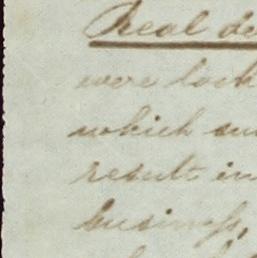 Real de
were look
which su
result in
business,